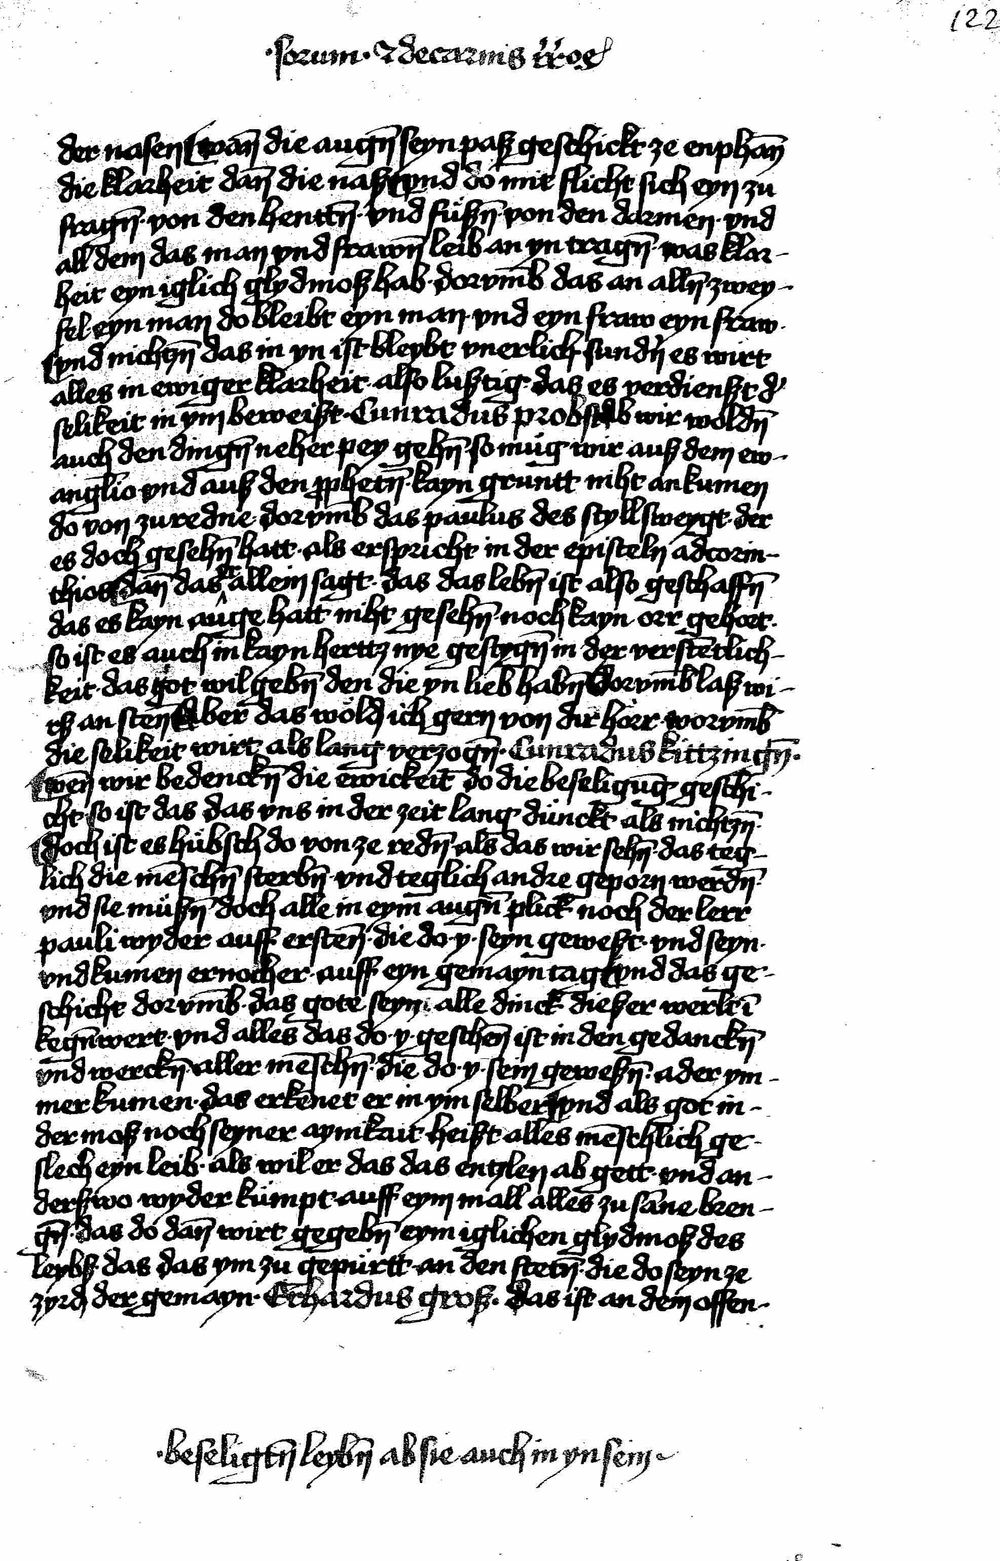 122
·sorum· ⁊ decarnis
der nasen wan̄ die augn̄ seyn paß geschickt ze enphan̄
die klarheit dan̄ die naß vnd do mit flicht sich eyn zu
fragn̄· von den henttn̄· vnd füßn̄· von den dormen· vnd
all dem das man vnd frawn̄ leib an yn tragn̄· was klar-
heit eyn iglich glydmoß hab· dorvm̄b das an alln̄ zwey-
fel· eyn man do bleibt eyn man· vnd eyn fraw eyn fraw·
vnd nichtzn̄ das in yn ist bleybt vnerlich· sundn̄ es wirt
alles in ewiger klarheit· also lustig· das es verdienßt d'
selikeit in ym beweißt· Cunradus probst Ob wir woldn̄
auch den dingn̄ neher pey gehn̄· so müg wir auß dem ew-
anglio vnd auß den ꝓphetn̄· kayn gruntt niht ankumen
do von zu redne· dorvm̄b das paulus des styllsweygt· der
es doch gesehn̄ hatt· als er spricht in der episteln adcorin-
thios dan̄ das er allein sagt· das das lebn̄ ist also geschaffn̄
das es kayn auge hatt niht gesehn̄· noch kayn orr gehort·
so ist es auch in kayn herttz nye gestygn̄ in der verstentlich-
keit· das got wil gebn̄ den die yn lieb habn̄ Dorvm̄b laß wi-
rß an sten̄ Aber das wöld ich gern von dir hörr· worvm̄b
die selikeit wirt als lang verzogn̄· Cunradus kittzingn̄·
wen̄ wir bedenckn̄ die ewickeit do die beseligunḡ geschi-
cht· so ist das das vns in der zeit lang dünckt· als nichtzn̄·
doch ist es hübsch do von ze redn̄· als das wir sehn̄· das teg-
lich die mēschn̄ sterbn̄· vnd teglich andre geporn werdn̄·
vnd sie müßn̄ doch alle in eym augn̄ plick noch der lerr
pauli wyder auff ersten̄· die do·y· seyn geweßt· vnd seyn·
vnd kumen ernocher· auff eyn gemayn tag vnd das ge-
schicht dorvm̄b· das gote seyn· alle dinck dießer werlt ī
kegn̄wert· vnd alles das do·y· geschen̄ ist in den gedanckn̄
vnd werckn̄· aller mēschn̄· die do·y· sein geweßn̄· ader ym-
mer kumen· das erkenet er in ym selber vnd als got in-
der moß noch seyner aynikait· heißt alles mēschlich ge-
slech eyn leib· als wil er das das entzlen ab gett· vnd an-
derßwo wyder kümpt· auff eym mall alles zu sāne bren-
gn̄· das do dan̄ wirt gegebn̄ eym iglichen glydmoß des
leybß· das das ym zu gepürtt· an den stetn̄· die do seyn ze
zyrd der gemayn· Erhardus groß· Das ist an dem offen-
·beseligtn̄ leybn̄ ab sie auch in yn sein·